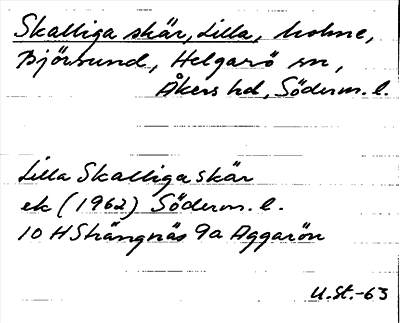 Skalliga skär, Lilla, holme,
Björsund, Helgarö sn,
Åkers hd, Söderm. l.
Lilla Skalliga skär
ek (1962) Söderm. l.
10 H Strängnäs 9a Aggarön
U.St.-63